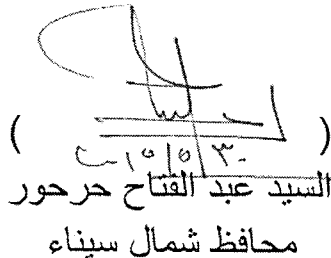 (            )
٢٠١٥/٥/٣٠
السيد عبد الفتاح حرحور
محافظ شمال سيناء